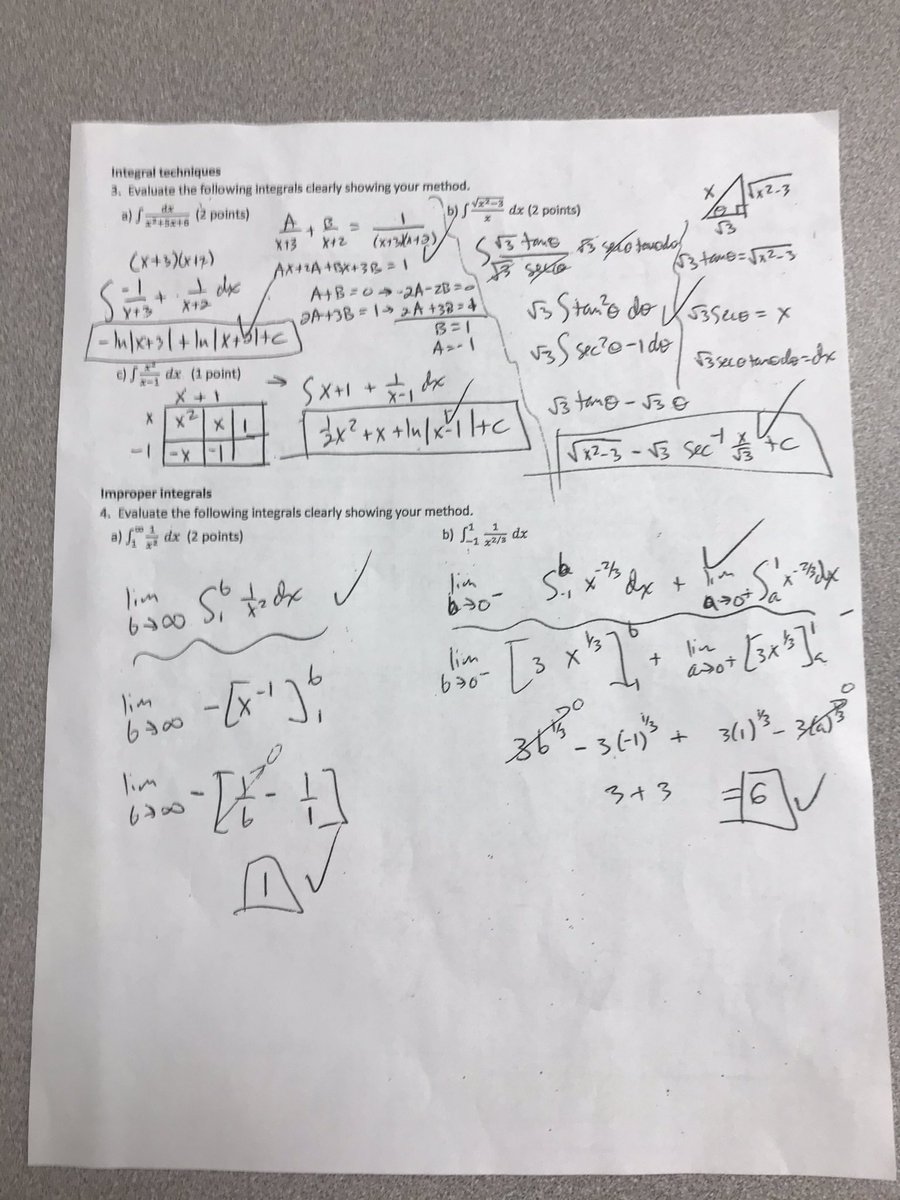 Integral techniques
3. Evaluate the following integrals clearly showing your method.
a) ∫ dx/(x²+5x+6) (2 points)
(x+3)(x+2)
A/(x+3) + B/(x+2) = 1/((x+3)(x+2))
Ax+2A+Bx+3B = 1
A+B=0 → -2A-2B=0
2A+3B=1 → 2A+3B=1
B=1
A=-1
∫ -1/(x+3) + 1/(x+2) dx
-ln|x+3| + ln|x+2| + C
b) ∫ √(x²-3)/x dx (2 points)
x √(x²-3)
θ
√3
∫ (√3 tanθ)/(√3 secθ) √3 secθ tanθ dθ
√3 tanθ = √(x²-3)
√3 ∫ tan²θ dθ
√3 secθ = x
√3 ∫ sec²θ - 1 dθ
√3 secθ tanθ dθ = dx
√3 tanθ - √3 θ
√(x²-3) - √3 sec⁻¹ x/√3 + C
c) ∫ x²/(x-1) dx (1 point)
x + 1
x x² x 1
-1 -x -1
→ ∫ x+1 + 1/(x-1) dx
½x² + x + ln|x-1| + C
Improper integrals
4. Evaluate the following integrals clearly showing your method.
a) ∫₁^∞ 1/x² dx (2 points)
lim b→∞ ∫₁^b 1/x² dx
lim b→∞ -[x⁻¹]₁^b
lim b→∞ -[1/b - 1/1]
0
1
b) ∫₋₁^1 1/x^(2/3) dx
lim b→0⁻ ∫₋₁^b x^(-2/3) dx + lim a→0⁺ ∫ₐ^1 x^(-2/3) dx
lim b→0⁻ [3x^(1/3)]₋₁^b + lim a→0⁺ [3x^(1/3)]ₐ^1
3b^(1/3) → 0 - 3(-1)^(1/3) + 3(1)^(1/3) - 3(a)^(1/3) → 0
3 + 3 = 6